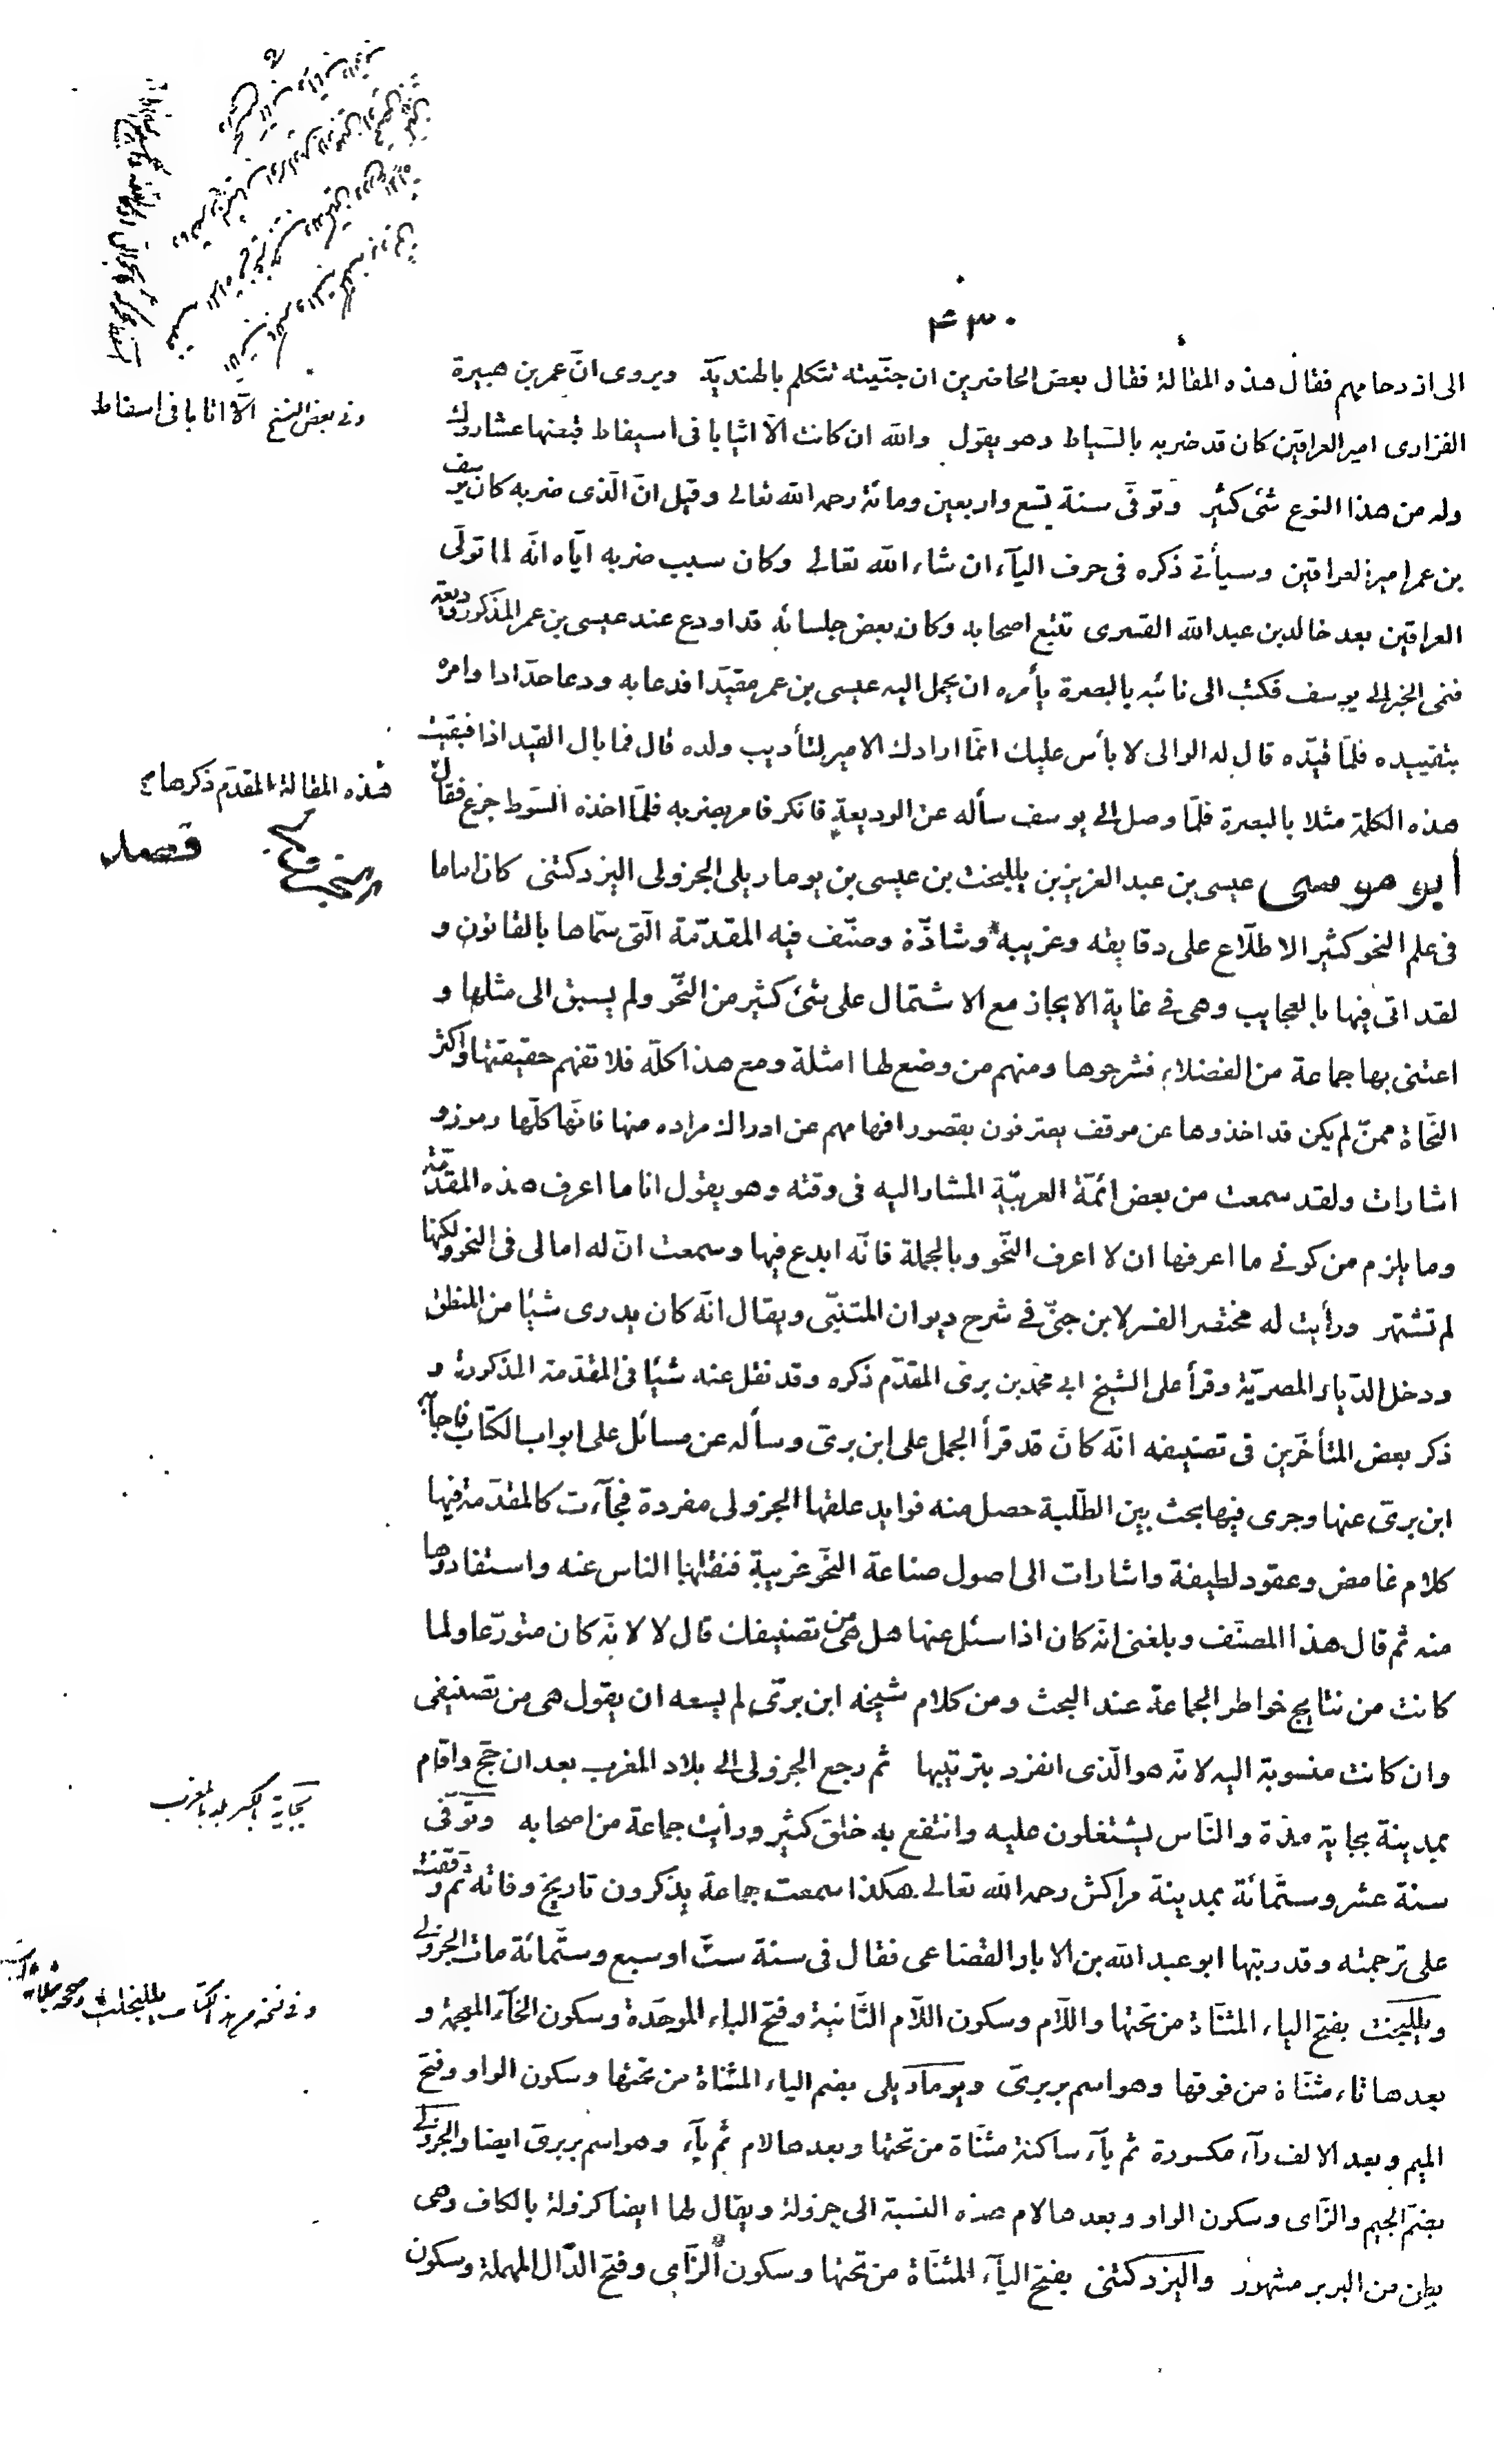 ۴۳۰
الى ازدحامهم فقال هذه المقالة فقال بعض الحاضرين ان جنّيته تتكلم بالهنديّة ويروى انّ عمر بن هبيرة
الفزارى امير العراقين كان قد ضربه بالسّياط وهو يقول والله ان كانت الّا اثيابا فى اسيفاط قبضها عشاروك
وله من هذا النوع شئ كثير وتوفّى سنة تسع واربعين ومائة رحمه الله تعالى وقيل انّ الّذى ضربه كان يوسف
بن عمر امير العراقين وسيأتى ذكره فى حرف اليآء ان شاء الله تعالى وكان سبب ضربه ايّاه انّه لما تولّى
العراقين بعد خالد بن عبد الله القسرى تتبع اصحابه وكان بعض جلسائه قد اودع عند عيسى بن عمر المذكور وديعة
فنمى الخبر الى يوسف فكتب الى نائبه بالبصرة يأمره ان يحمل اليه عيسى بن عمر مقيّدا فدعا به ودعا حدّادا وامره
بتقييده فلمّا قيّده قال له الوالى لا بأس عليك انّما ارادك الامير لتأديب ولده قال فما بال القيد اذا فبقيت
هذه الكلمة مثلا بالبصرة فلمّا وصل الى يوسف سأله عن الوديعة فانكر فامر بضربه فلمّا اخذه السّوط جزع فقال
أبو موسى عيسى بن عبد العزيز بن يلليخت بن عيسى بن يوماريلى الجزولى اليزدكتنى كان اماما
فى علم النحو كثير الاطلّاع على دقايقه وغريبه وشاذّه وصنّف فيه المقدّمة الّتى سمّاها بالقانون و
لقد اتى فيها بالعجايب وهى فى غاية الايجاز مع الاشتمال على شئ كثير من النّحو ولم يسبق الى مثلها و
اعتنى بها جماعة من الفضلاء فشرحوها ومنهم من وضع لها امثلة ومع هذا كلّه فلا تفهم حقيقتها واكثر
النّحاة ممنّ لم يكن قد اخذوها عن موقف يعترفون بقصور افهامهم عن ادراك مراده منها فانّها كلّها رموز و
اشارات ولقد سمعت من بعض ائمّة العربيّة المشار اليه فى وقته وهو يقول انا ما اعرف هذه المقدّمة
وما يلزم من كونى ما اعرفها ان لا اعرف النّحو وبالجملة فانّه ابدع فيها وسمعت انّ له امالى فى النحو ولكنها
لم تشتهر ورأيت له مختصر الفسر لابن جنّى فى شرح ديوان المتنبّى ويقال انّه كان يدرى شيئا من المنطق
ودخل الدّيار المصريّة وقرأ على الشيخ ابى محمّد بن برىّ المقدّم ذكره وقد نقل عنه شيئا فى المقدّمة المذكورة و
ذكر بعض المتأخّرين فى تصنيفه انّه كان قد قرأ الجمل على ابن برىّ وسأله عن مسائل على ابواب الكتاب فاجابه
ابن برىّ عنها وجرى فيها بحث بين الطّلبة حصل منه فوايد علقها الجزولى مفردة فجآءت كالمقدّمة فيها
كلام غامض وعقود لطيفة واشارات الى اصول صناعة النّحو غريبة فنقلها الناس عنه واستفادوها
منه ثم قال هذا المصنّف وبلغنى انّه كان اذا سئل عنها هل هى من تصنيفك قال لا لانّه كان متورّعا ولما
كانت من نتايج خواطر الجماعة عند البحث ومن كلام شيخه ابن برّى لم يسعه ان يقول هى من تصنيفى
وان كانت منسوبة اليه لانّه هو الّذى انفرد بترتيبها ثم رجع الجزولى الى بلاد المغرب بعد ان حجّ واقام
بمدينة بجاية مدّة والنّاس يشتغلون عليه وانتفع به خلق كثير ورأيت جماعة من اصحابه وتوّفى
سنة عشر وستّمائة بمدينة مراكش رحمه الله تعالى هكذا سمعت جماعة يذكرون تاريخ وفاته ثم وقفت
على ترجمته وقد رتبها ابو عبد الله بن الابار القضاعى فقال فى سنة ستّ او سبع وستّمائة مات الجزولى
ويلليخت بفتح الياء المثنّاة من تحتها واللّام وسكون اللّام الثّانية وفتح الباء الموحّدة وسكون الخآء المعجمة و
بعدها تاء مثنّاة من فوقها وهو اسم بربرىّ ويوماريلى بضم الياء المثناة من تحتها وسكون الواو وفتح
الميم وبعد الالف رآء مكسورة ثم يآء ساكنة مثنّاة من تحتها وبعدها لام ثم يآء وهو اسم بربرىّ ايضا والجزولى
بضمّ الجيم والزّاى وسكون الواو وبعدها لام هذه النسبة الى جزولة ويقال لها ايضا كزولة بالكاف وهى
بطن من البربر مشهور واليزدكتنى بفتح اليآء المثنّاة من تحتها وسكون الزّاى وفتح الدّال المهملة وسكون
وفى بعض النسخ الّا اثيابا فى اسفاط
هذه المقالة المقدّم ذكرها
بجاية بلد بالمغرب